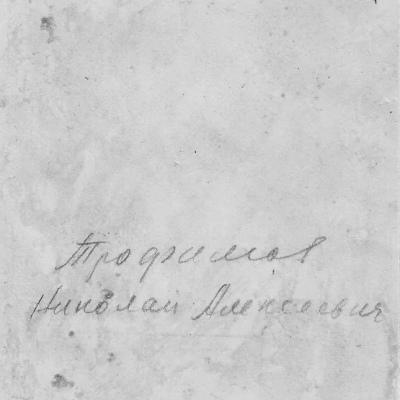 Трофимов
Николай Алексеевич